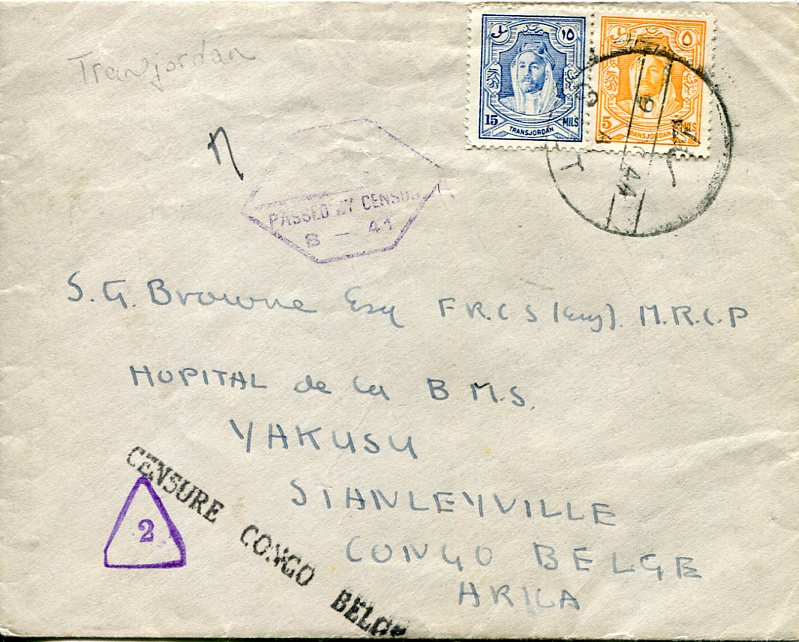 Tranjordan
١٥
15 MILS
TRANSJORDAN
٥
5 MILS
TRANSJORDAN
44
PASSED BY CENSOR
B - 41
S.G. Browne Esq F.R.C.S (Eng). M.R.C.P
HOPITAL de la B.M.S.
YAKUSU
STANLEYVILLE
CONGO BELGE
ARICA
CENSURE CONGO BELGE
2